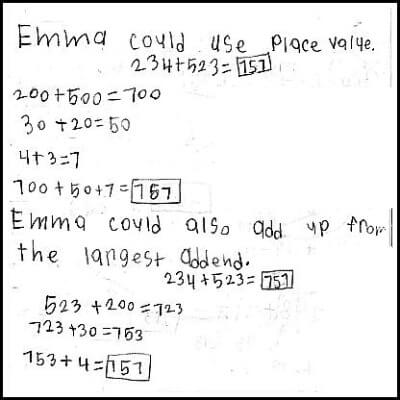 Emma could use place value.
234+523=757
200+500=700
30+20=50
4+3=7
700+50+7=757
Emma could also add up from
the largest addend.
234+523=757
523+200=723
723+30=753
753+4=757